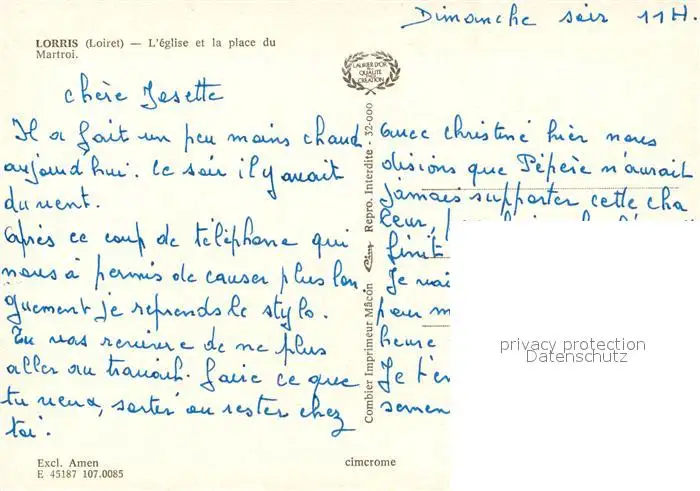 Dimanche soir 11H.
LORRIS (Loiret) — L'église et la place du
Martroi.
LAURIER D'OR
DE LA
QUALITÉ
CRÉATION
chère Josette
Il a fait un peu moins chaud
aujourd'hui. ce soir il y avait
du vent.
après ce coup de téléphone qui
nous à permis de causer plus lon
guement je reprends le stylo.
Tu vas revivre de ne plus
aller au travail. faire ce que
tu veux, sortir ou rester chez
toi.
Combier Imprimeur Mâcon Cim Repro. Interdite - 32-000
avec christine hier nous
disions que Pépère n'aurait
jamais supporter cette cha
leur,
finit
Je
pour
heure
Je
privacy protection
Datenschutz
Excl. Amen
E 45187 107.0085
cimcrome